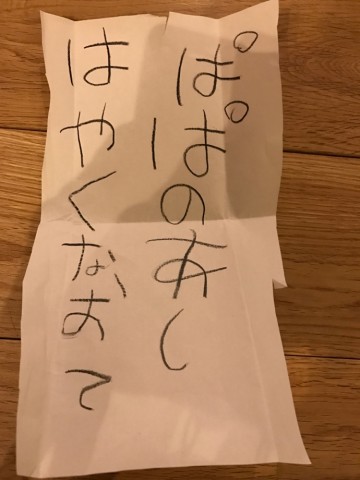 ぱぱのあし
はやくなおて